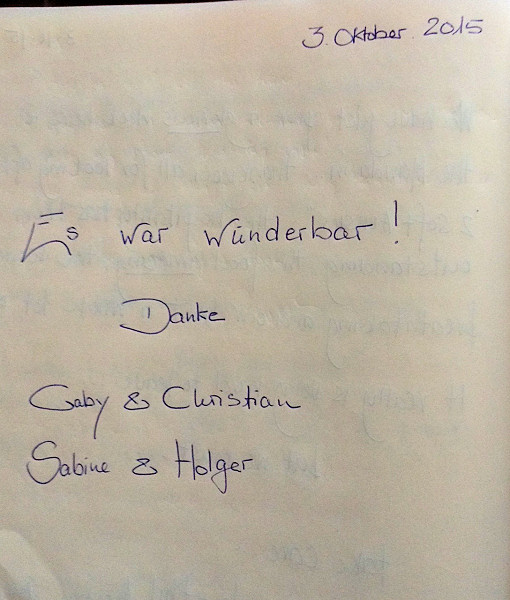 3. Oktober. 2015
Es war wunderbar!
Danke
Gaby & Christian
Sabine & Holger